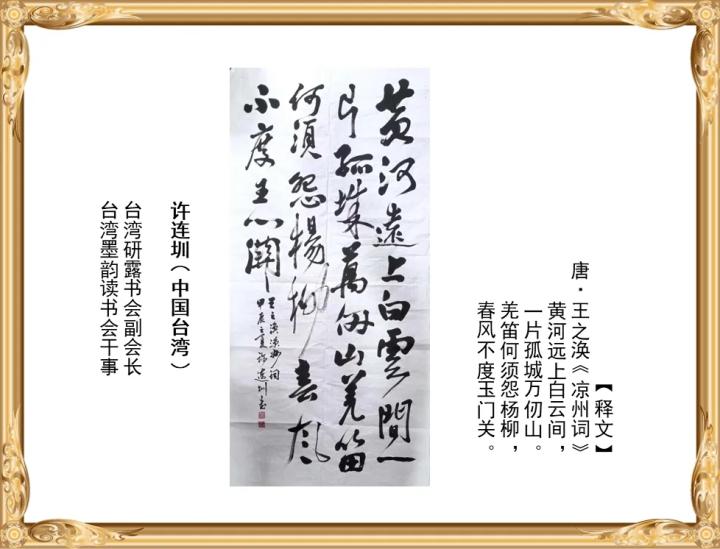 【释文】
唐·王之涣《凉州词》
黄河远上白云间，
一片孤城万仞山。
羌笛何须怨杨柳，
春风不度玉门关。
黄河遠上白雲間一
片孤城萬仞山羌笛
何須怨楊柳春風
不度玉门關
王之渙涼州詞
甲辰之夏許連圳書
许连圳（中国台湾）
台湾研露书会副会长
台湾墨韵读书会干事